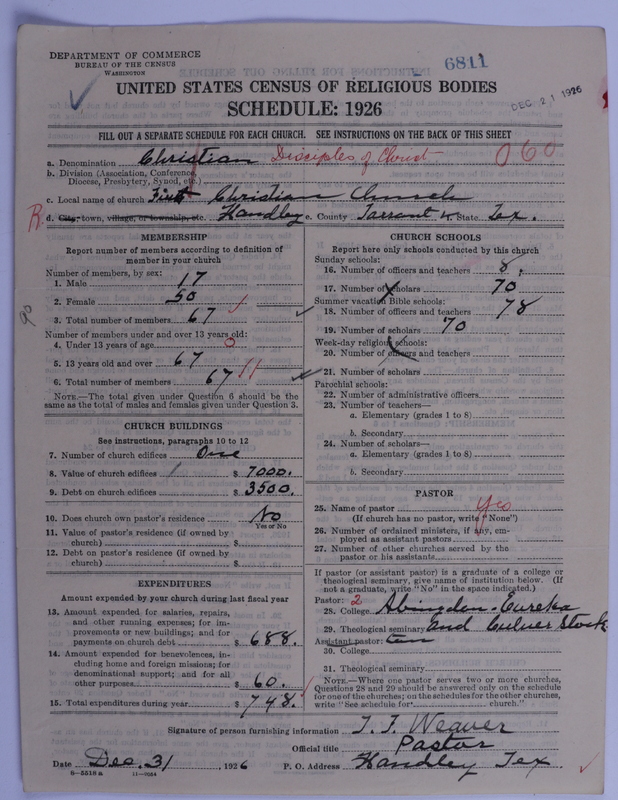 DEPARTMENT OF COMMERCE
BUREAU OF THE CENSUS
WASHINGTON
6811
DEC 21 1926
UNITED STATES CENSUS OF RELIGIOUS BODIES
SCHEDULE: 1926
FILL OUT A SEPARATE SCHEDULE FOR EACH CHURCH. SEE INSTRUCTIONS ON THE BACK OF THIS SHEET
a. Denomination Christian Disciples of Christ 060
b. Division (Association, Conference,
Diocese, Presbytery, Synod, etc.)
c. Local name of church First Christian Church
R. d. City, town, village, or township, etc. Handley e. County Tarrant f. State Tex.
MEMBERSHIP
Report number of members according to definition of
member in your church
Number of members, by sex:
1. Male 17
2. Female 50
3. Total number of members 67
Number of members under and over 13 years old:
4. Under 13 years of age 0
5. 13 years old and over 67
6. Total number of members 67
NOTE.—The total given under Question 6 should be the
same as the total of males and females given under Question 3.
CHURCH BUILDINGS
See instructions, paragraphs 10 to 12
7. Number of church edifices One
8. Value of church edifices $ 7000.
9. Debt on church edifices $ 3500.
10. Does church own pastor's residence No
Yes or No
11. Value of pastor's residence (if owned by
church) $
12. Debt on pastor's residence (if owned by
church) $
EXPENDITURES
Amount expended by your church during last fiscal year
13. Amount expended for salaries, repairs,
and other running expenses; for im-
provements or new buildings; and for
payments on church debt $ 688.
14. Amount expended for benevolences, in-
cluding home and foreign missions; for
denominational support; and for all
other purposes $ 60.
15. Total expenditures during year $ 748.
CHURCH SCHOOLS
Report here only schools conducted by this church
Sunday schools:
16. Number of officers and teachers 8
17. Number of scholars 70
Summer vacation Bible schools:
18. Number of officers and teachers 78
19. Number of scholars 70
Week-day religious schools:
20. Number of officers and teachers
21. Number of scholars
Parochial schools:
22. Number of administrative officers
23. Number of teachers—
a. Elementary (grades 1 to 8)
b. Secondary
24. Number of scholars—
a. Elementary (grades 1 to 8)
b. Secondary
PASTOR
25. Name of pastor yes
(If church has no pastor, write "None")
26. Number of ordained ministers, if any, em-
ployed as assistant pastors
27. Number of other churches served by the
pastor or his assistants
If pastor (or assistant pastor) is a graduate of a college or
theological seminary, give name of institution below. (If
not a graduate, write "No" in the space indicated.)
Pastor: 2
28. College Abingdon-Eureka
29. Theological seminary and Culver Stock
Assistant pastor: ton
30. College
31. Theological seminary
NOTE.—Where one pastor serves two or more churches,
Questions 28 and 29 should be answered only on the schedule
for one of the churches; on the schedules for the other churches,
write "See schedule for church."
Signature of person furnishing information T. T. Weaver
Official title Pastor
Date Dec. 31, 1926 P. O. Address Handley Tex
8—5518a 11—9054